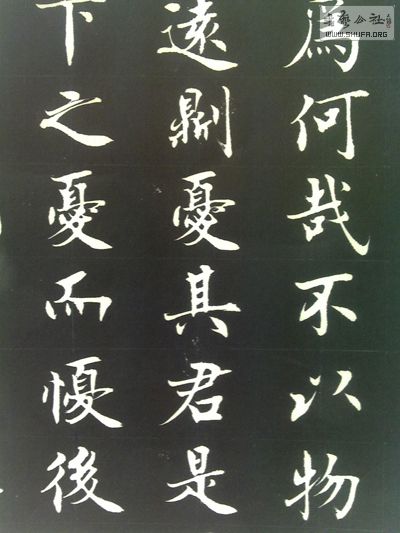 爲何哉不以物
遠則憂其君是
下之憂而懮後
藝公社
WWW.SHUFA.ORG